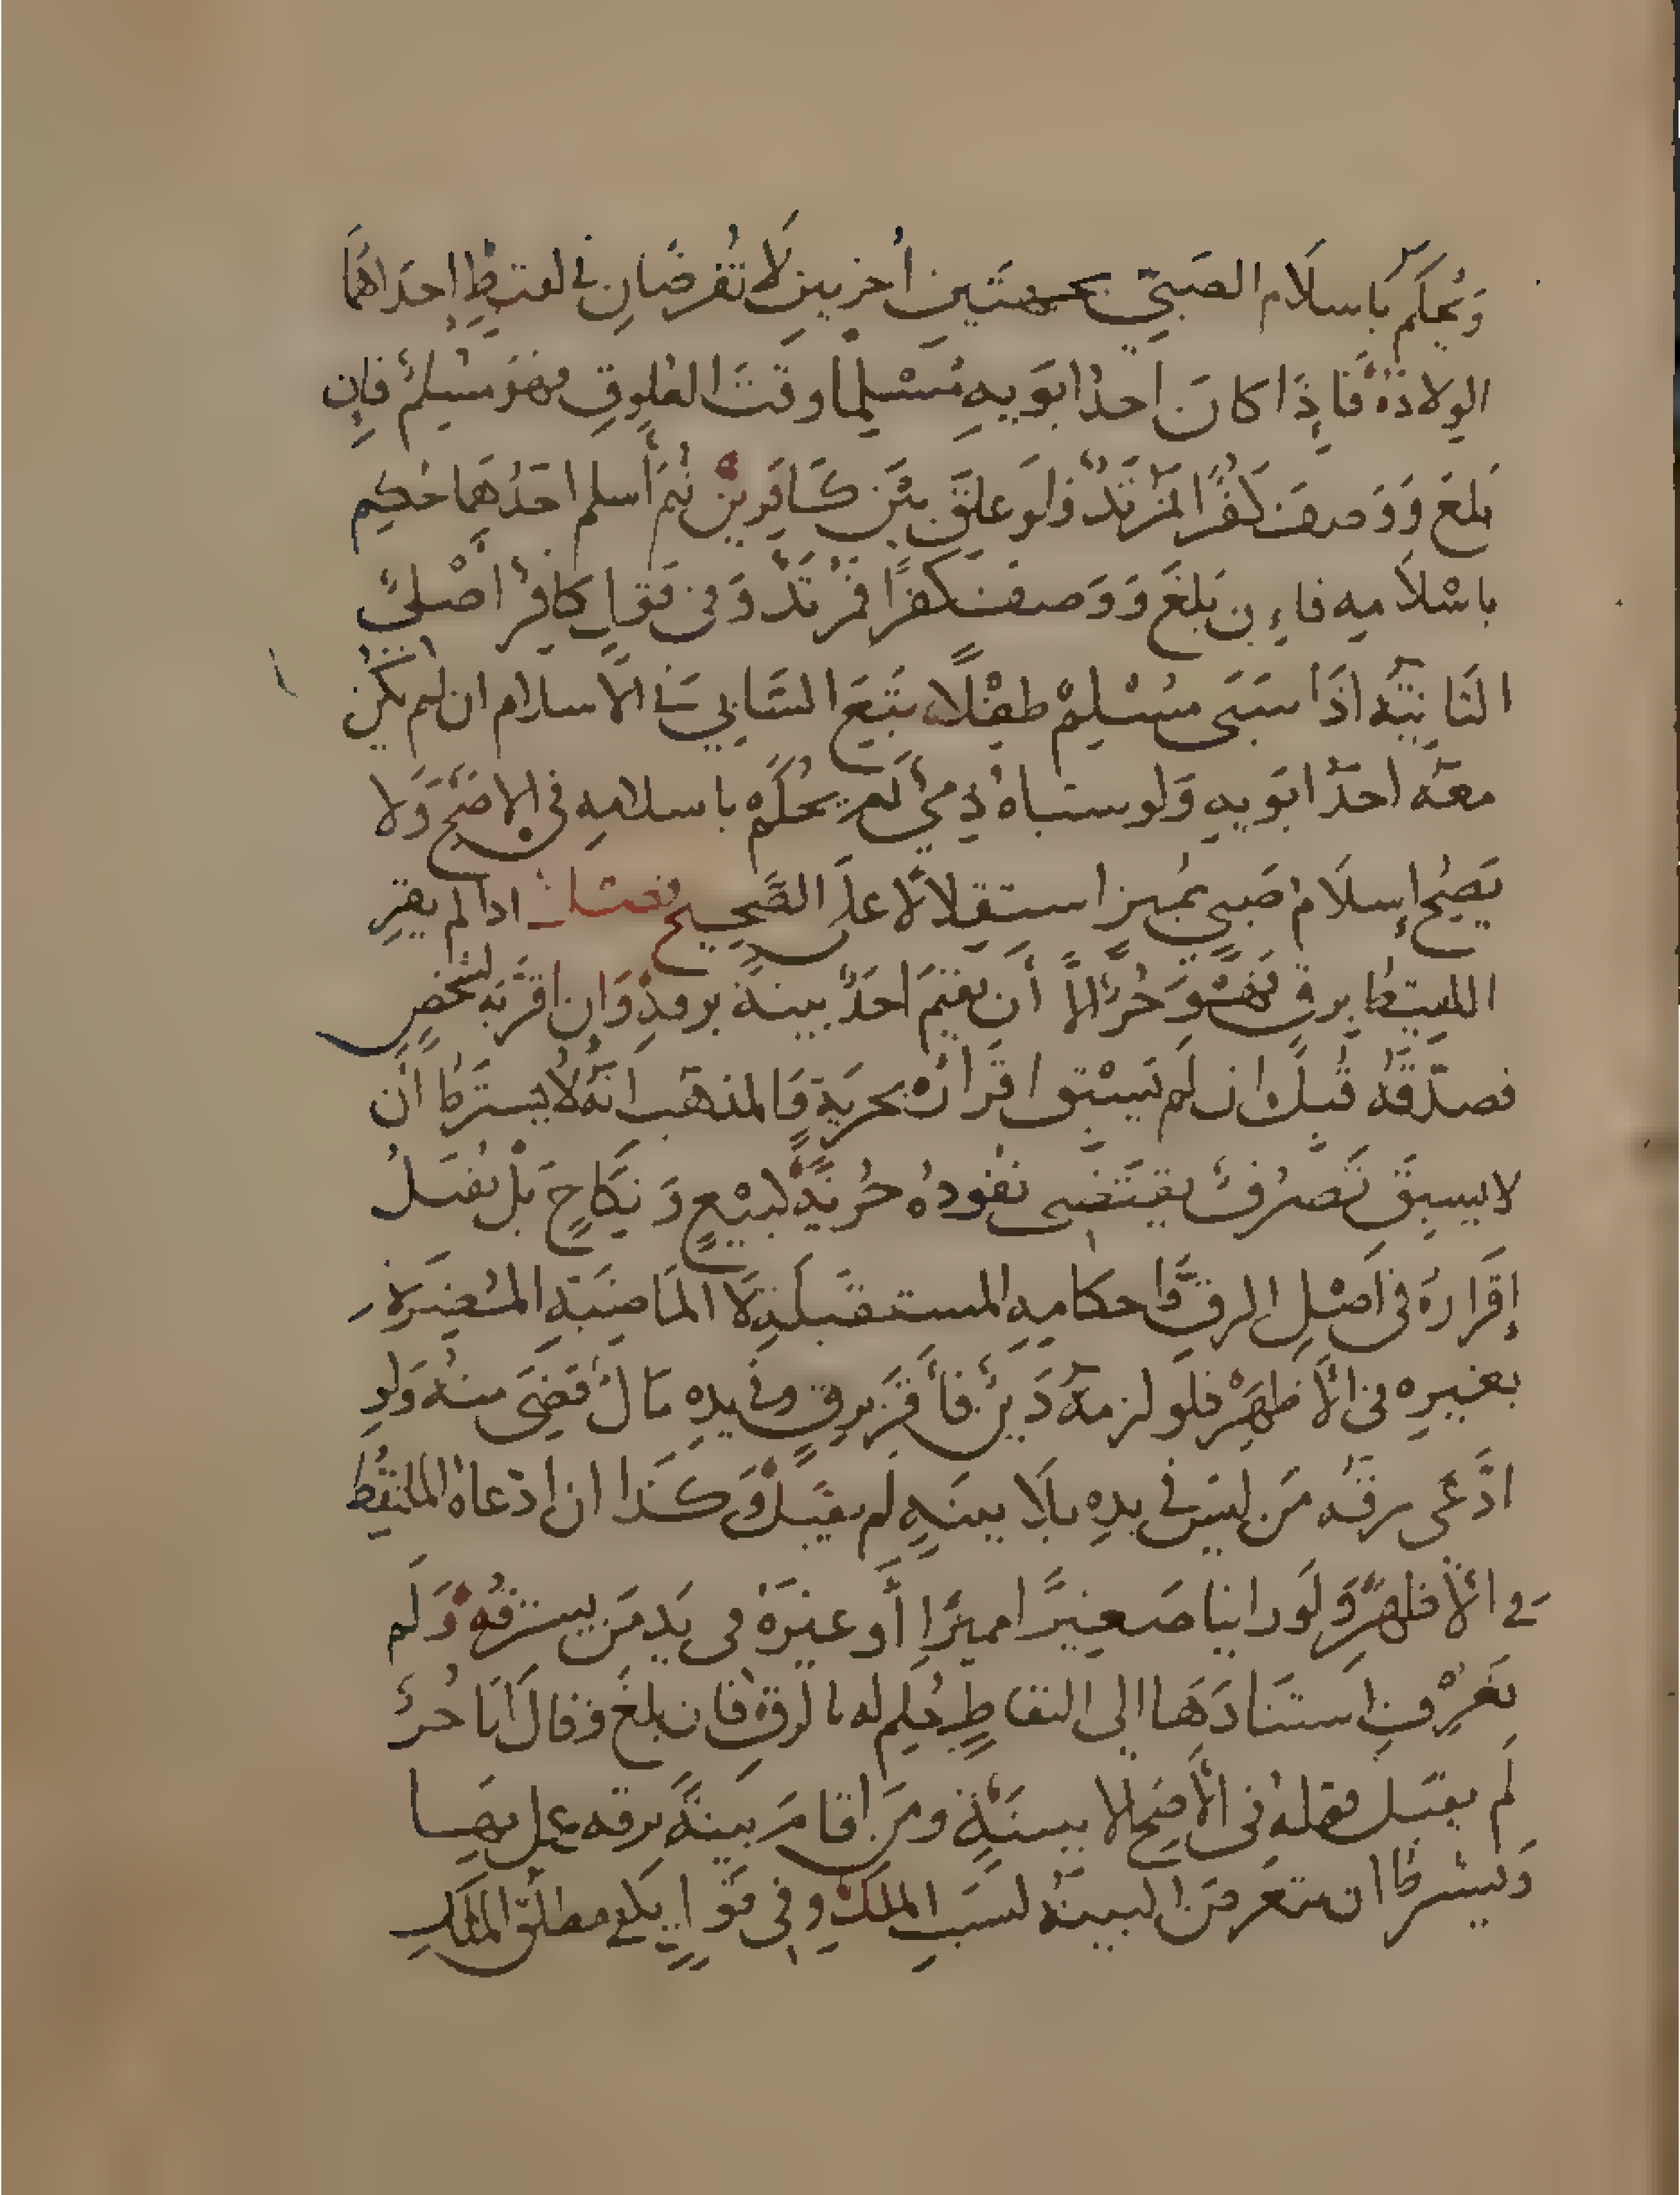 وَيُحكَم بِاسلَام الصَبيّ بجهتَين أُخريين لَا تُفرضَان في لقيطٍ إحدَاهُمَا
الولادَة فَإذَا كانَ احدُ ابوَيهِ مُسْلِمًا وقتَ العُلوقِ فهوَ مُسْلِمٌ فإن
بَلغَ وَوَصفَ كفرًا فمُرتَدٌّ ولَو علِقَ بَيْنَ كافِرَيْنِ ثمَ أسلم احَدُهمَا حُكِم
باسْلَامِه فاءِن بَلغَ وَوَصفَ كفرًا فمُرْتَدٌّ وَفي قولٍ كَافِرٌ أصْليٌّ
الثَانيَةُ اذَا سَبَى مُسْلِمٌ طِفْلًا تبَعَ السَّابِيَ في الاسلام ان لم يَكُن
معَهُ احدُ ابوَيهِ وَلو سبَاهُ ذِميٌّ لَم يُحكَم باسلامِه في الاصَحِّ وَلا
يَصِحُّ إسلَامُ صَبيٍّ مُميزٍ استِقلالًا علَى الصَّحِيحِ فَصْلٌ اذا لم يقرّ
اللقيط برقٍّ فَهُوَ حُرٌّ الاَّ أن يقيمَ احَدٌ بينةً برقهِ وَان اقرَّ بَه لشخصٍ
فصدّقَهُ قُبلَ ان لم يَسبق اقرَارُهُ بحرّيةٍ وَالمذهَب انَّهُ لا يُشترَط أن
لا يسبِقَ تَصَرُّفٌ يقتَضي نفُوذُهُ حُرّيَّةً كبَيْعٍ وَنِكَاحٍ بَل يُقبَلُ
إقرَارهُ في أصْلِ الرقِّ وَاحكامِهِ المستقبَلةِ لَا المَاضيَةِ المُضِرَّةِ
بغيرِه في الأظهَرِ فلَو لزمهُ دَينٌ فأقرَّ برقٍّ وفي يدِهِ مَالٌ قضِيَ منهُ وَلو
ادَّعَى رقهُ مَن لَيسَ في يدِهِ بلَا بينَةٍ لَم يقبَل وَكذَا ان ادّعاهُ الملتقِط
في الأظهَرِ وَلَو راينا صَغيرًا مميزًا أو غيرَهُ في يَد مَن يسترقّهُ وَلَم
يَعرِف استنَادَهَا الى التقاطٍ حُكِم له بالرقِّ فان بلغَ وَقالَ أنَا حُرٌّ
لَم يقبَل قولهُ في الأصَحِّ الا ببينَةٍ ومَن اقامَ بينَةً برقه عمل بهَا
وَيُشترَط ان تتعرضَ البينَةُ لسَبَبِ الملكِ وفي قولٍ يكفي مطلَق الملكِ